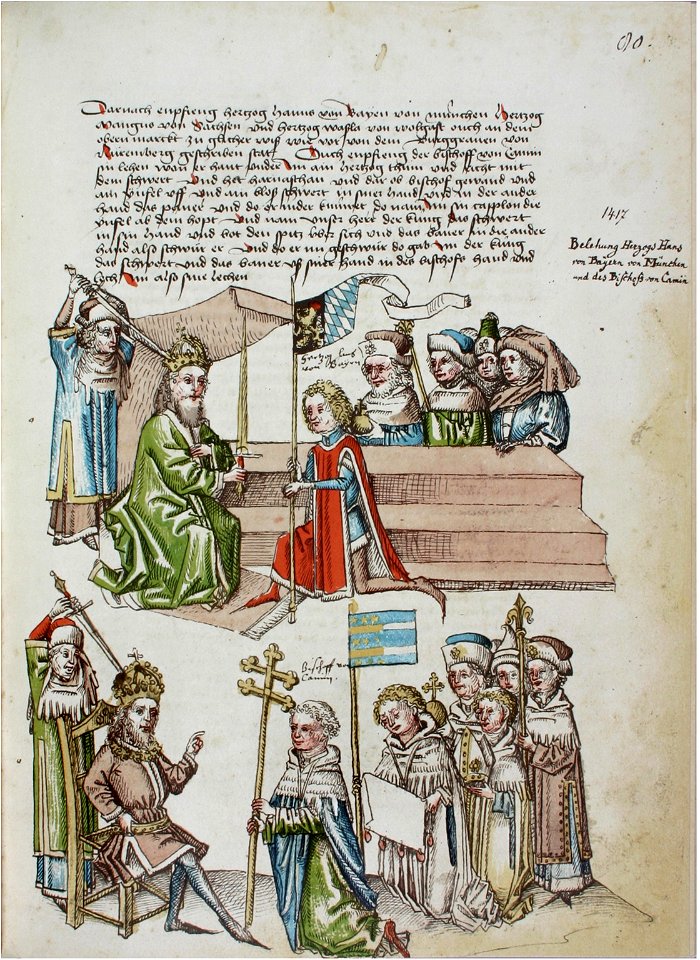 Darnach enpfieng hertzog Hanns von Bayen von münchen Hertzog
Mangnus von Sachsen Und hertzog von wolgast ouch an dem
obern marckt zu gelicher wiß wie vor von dem Burggrauen von
Nüremberg geschriben stat Ouch enpfieng der bischoff von Camin
sin lehen wan er hant bander Ein am hertzog thum und nicht mit
dem schwert Und het harnaschan und dar ob bischofs gewand und
ain Infel uff und ain bloß schwert in siner hand und in der ander
hand das paner Und do er under kniuwet do nam im sin capplon die
ynfel ab dem hopt Und nam unser herr der küng das schwert
in sin hand und bot den spitz über sich und das baner in die ander
hand also schwur er Und do er im geschwur do gab im der küng
das schwert und das baner uß siner hand in des bischofs hand und
lech im also sine lechen
1417
Belehung Herzogs Hans
von Bayern von München
und des Bischofs von Camin
Hertzog hans
von Bayen
Bischoff von
Camin